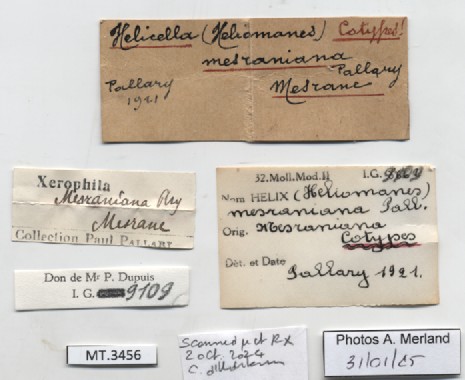 Helicella (Heliomanes) Cotypes!
mesraniana
Pallary
Pallary
1921
Mesrane
Xerophila
Mesraniana Ply
Mesrane
Collection Paul PALLARY
32.Moll.Mod.II I.G.
Nom HELIX (Heliomanes)
mesraniana Pall.
Orig. Mesraniana
Cotypes
Dét. et Date
Pallary 1921.
Don de Mr P. Dupuis
I. G. 9109
MT.3456
Scanned µct RX
2 oct. 2024
C.
Photos A. Merland
31/01/25